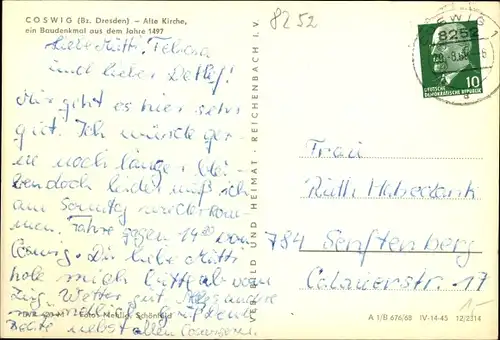 COSWIG (Bz. Dresden) – Alte Kirche,
ein Baudenkmal aus dem Jahre 1497
8252
COSWIG 1
8252
DEUTSCHE
DEMOKRATISCHE REPUBLIK
10
a
Liebe Mutti,
und lieber Detlef!
Mir geht es hier sehr
gut. Ich würde ger-
ne noch länger blei-
ben doch leider muß ich
am Sonntag wiederkom-
men. Fahre gegen 14 20 von
Coswig. Du liebe Mutti
hole mich bitte ab vom
Zug. Wetter gut. Alles andere
mündlich. Es grüßt
nebst allen
VEB BILD UND HEIMAT · REICHENBACH I. V.
Foto: Schönfeld
Frau
Ruth
784 Senftenberg
Calauerstr. 17
A 1/B 676/68 IV-14-45 12/2314